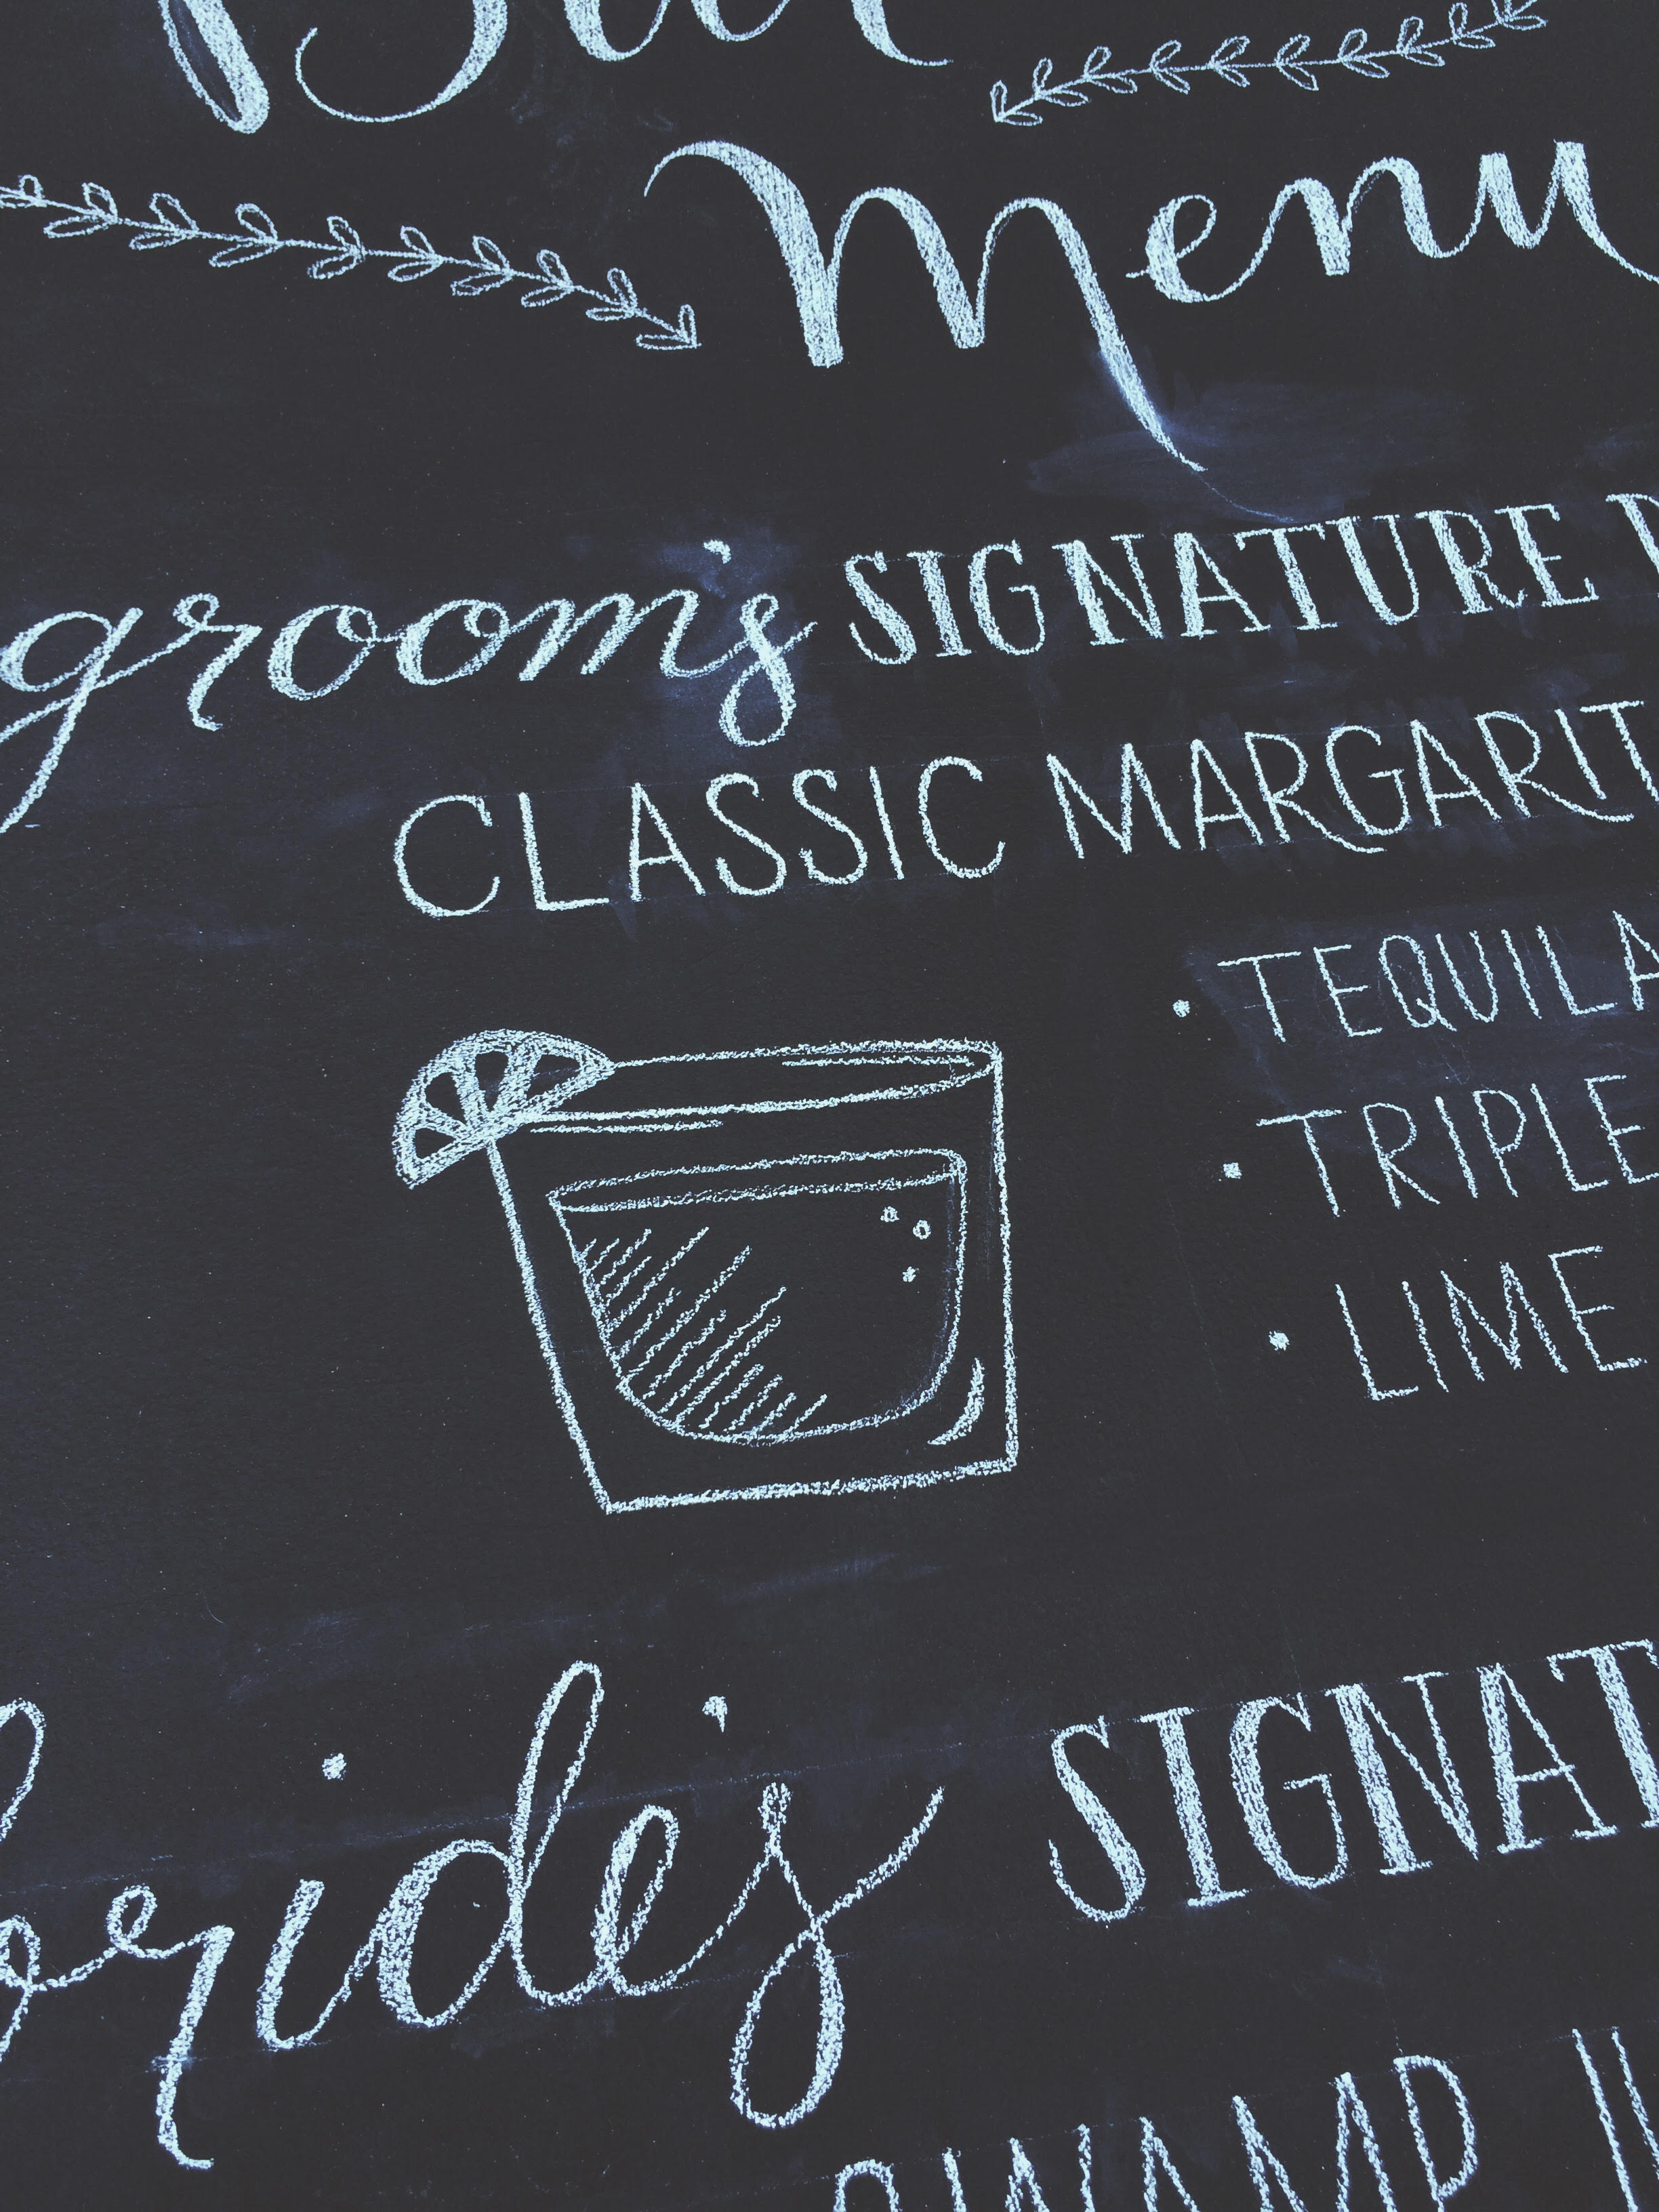 Bar
Menu
groom's SIGNATURE
CLASSIC MARGARIT
• TEQUILA
• TRIPLE
• LIME
bride's SIGNAT
SWAMP